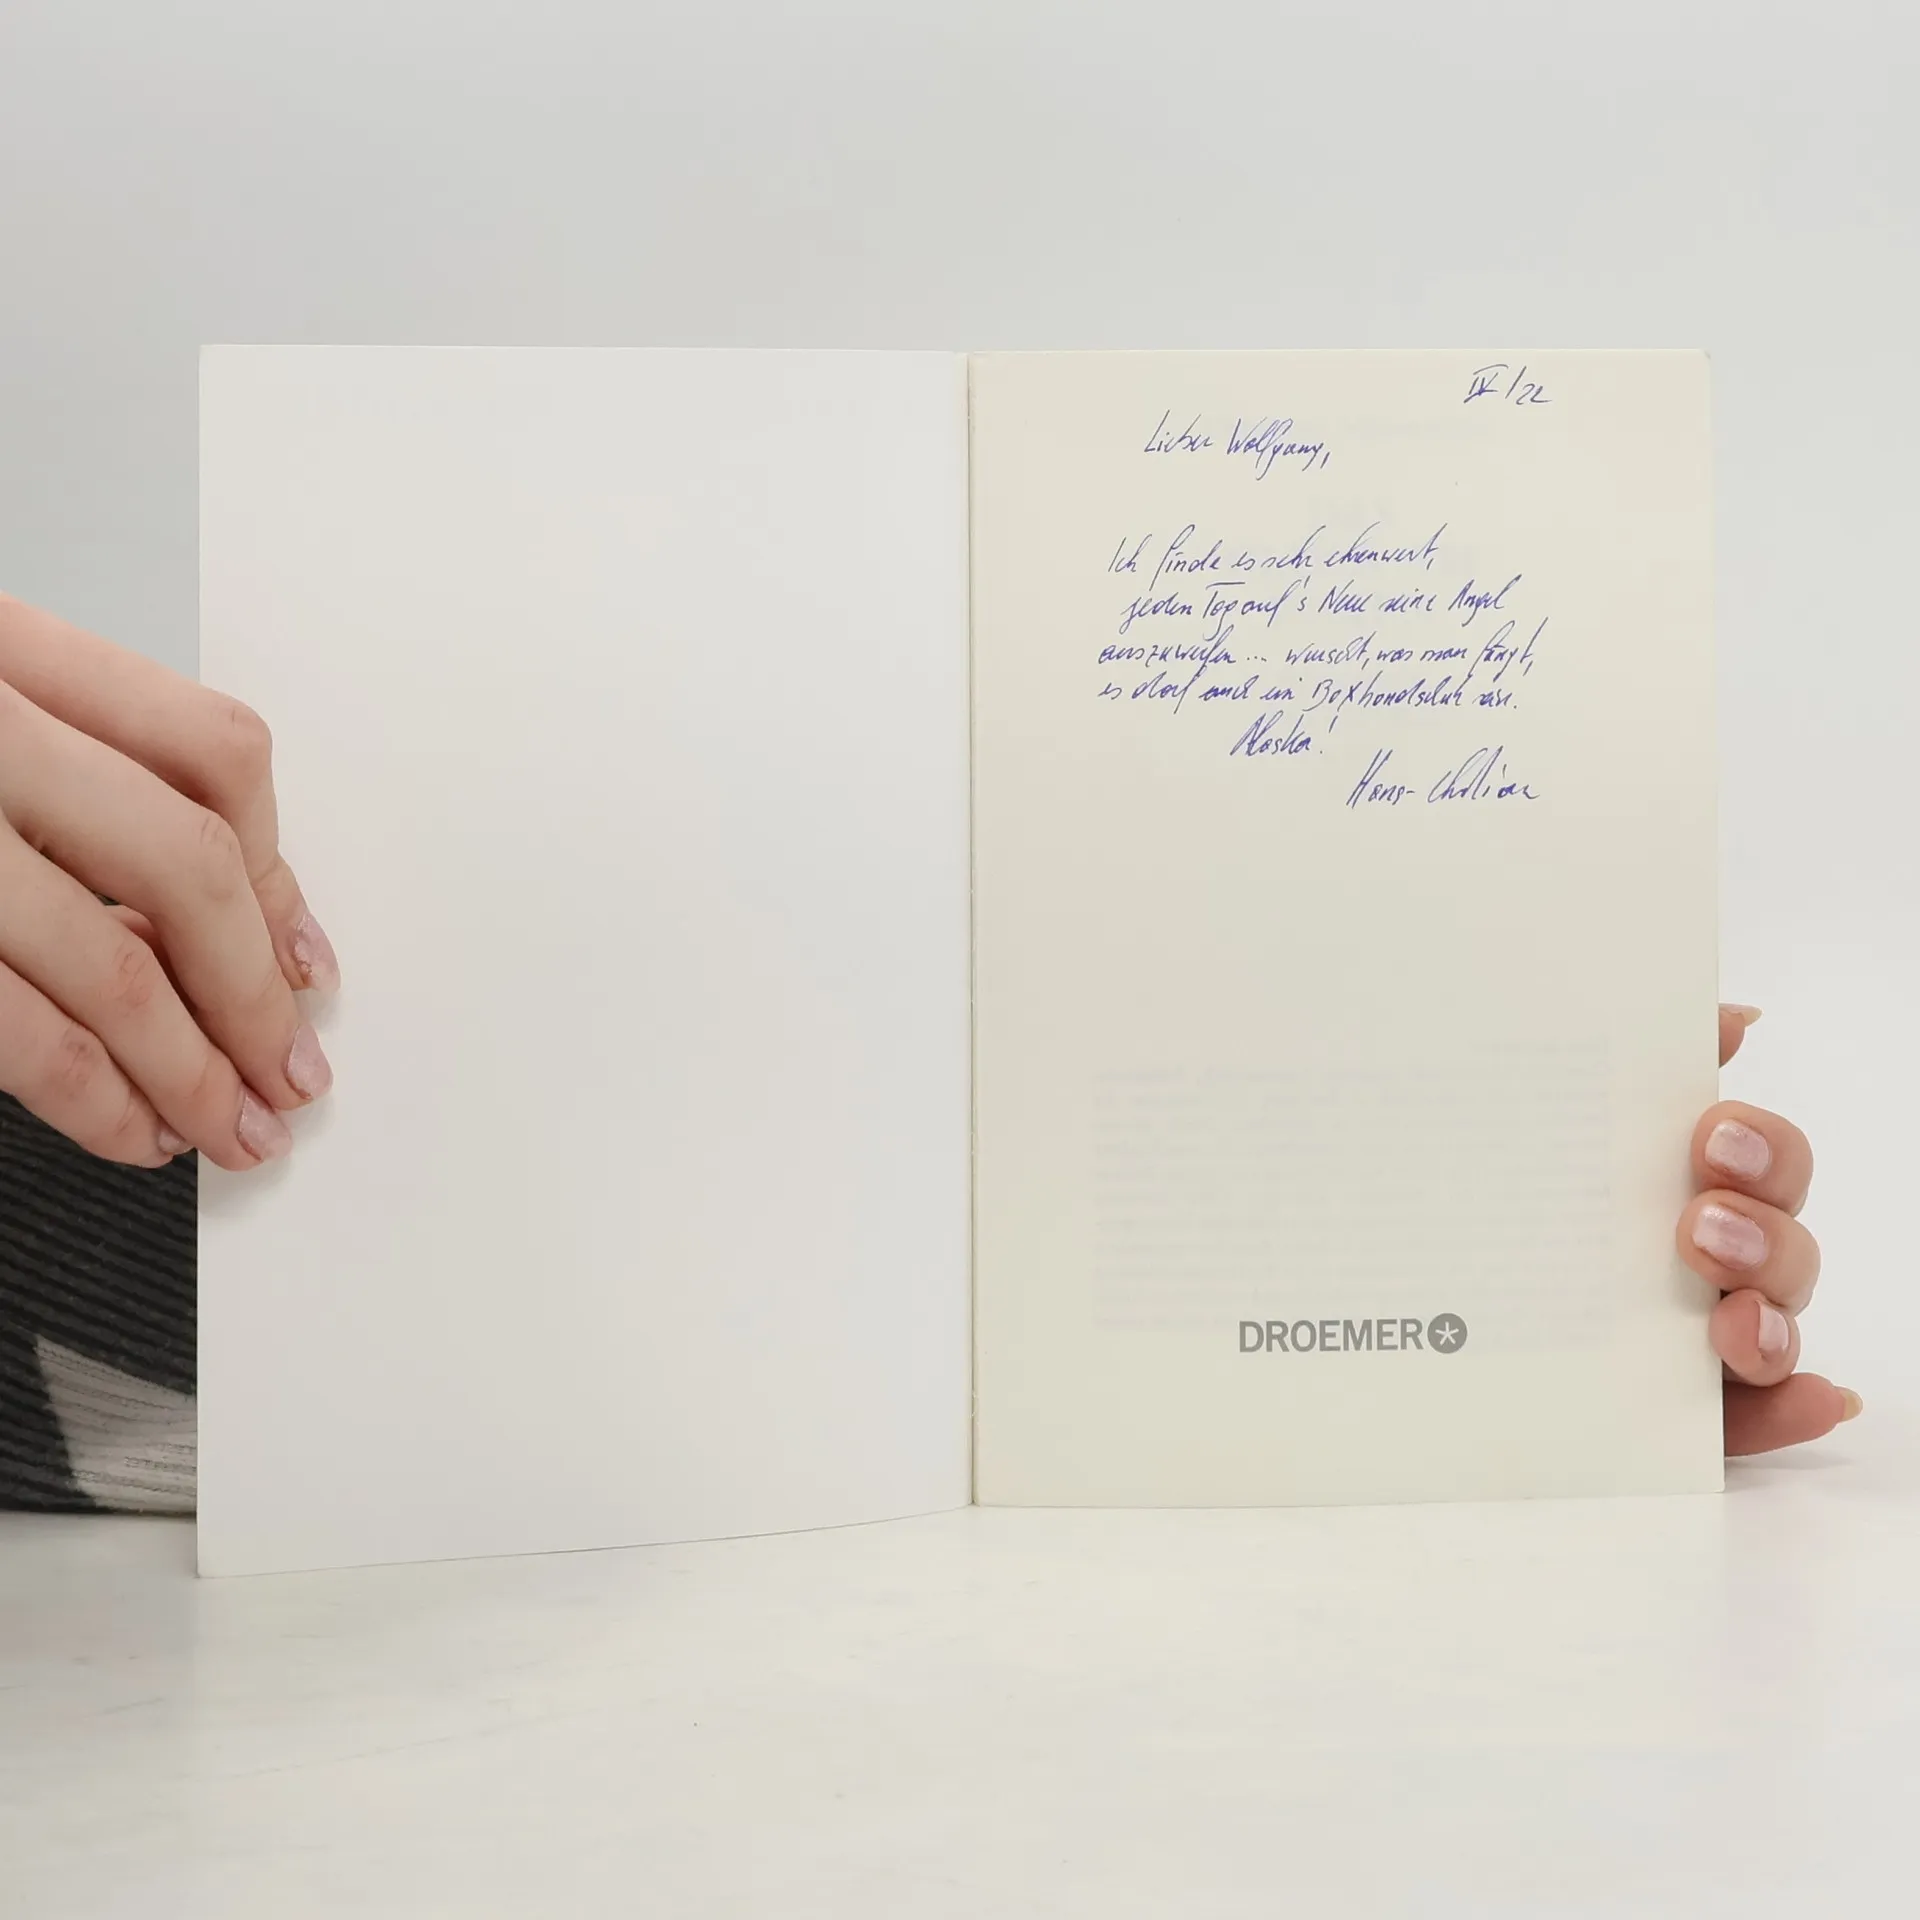 IV/22
Lieber Wolfgang,
Ich finde es sehr ehrenwert,
jeden Tag auf's Neue seine Angel
auszuwerfen... wurscht, was man fängt,
es darf auch ein Boxhandschuh sein.
Alaska!
Hans-Christian
DROEMER